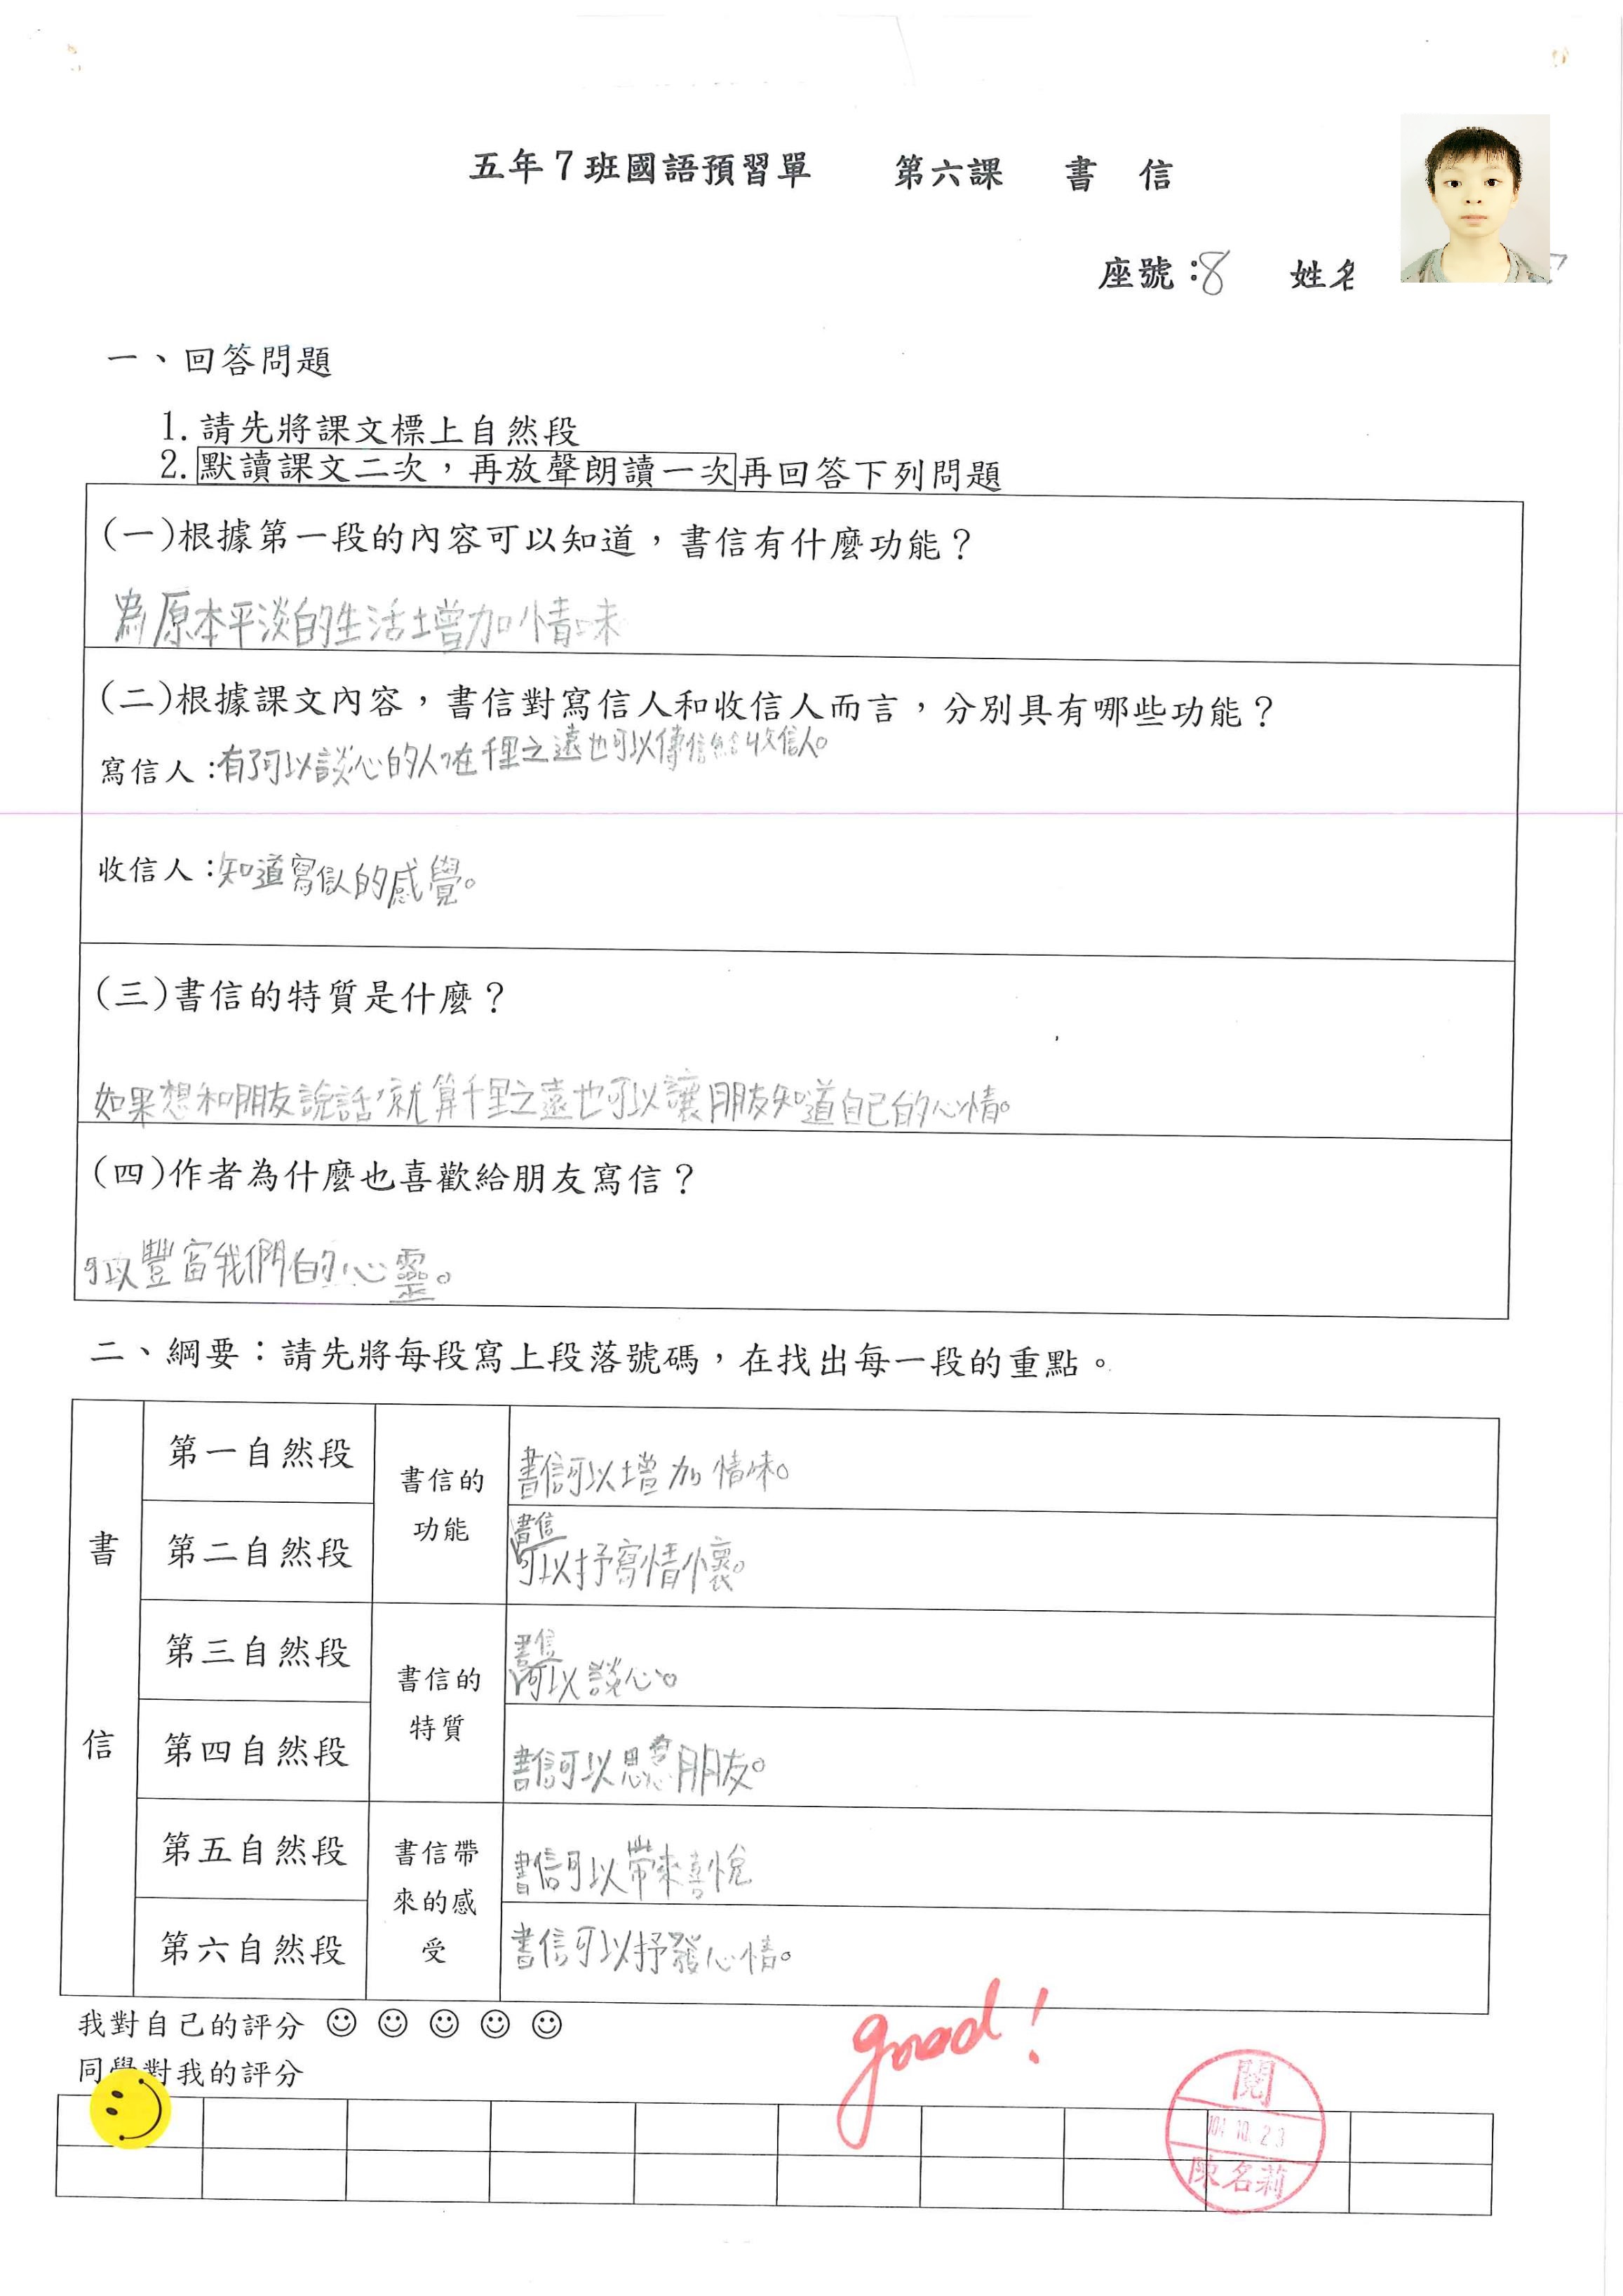 五年7班國語預習單 第六課 書信
座號：8 姓名
一、回答問題
1. 請先將課文標上自然段
2. 默讀課文二次，再放聲朗讀一次再回答下列問題
(一)根據第一段的內容可以知道，書信有什麼功能？
為原本平淡的生活增加情味
(二)根據課文內容，書信對寫信人和收信人而言，分別具有哪些功能？
寫信人：有了可以談心的人，在千里之遠也可以傳信給收信人。
收信人：知道寫信人的感覺。
(三)書信的特質是什麼？
如果想和朋友說話，就算千里之遠也可以讓朋友知道自己的心情。
(四)作者為什麼也喜歡給朋友寫信？
可以豐富我們的心靈。
二、綱要：請先將每段寫上段落號碼，在找出每一段的重點。
書信
第一自然段 書信的功能 書信可以增加情味。
第二自然段 書信可以抒寫情懷。
第三自然段 書信的特質 書信可以談心。
第四自然段 書信可以思念朋友。
第五自然段 書信帶來的感受 書信可以帶來喜悅
第六自然段 書信可以抒發心情。
我對自己的評分 ☺ ☺ ☺ ☺ ☺
同學對我的評分
good!
閱
104.10.23
陳名莉